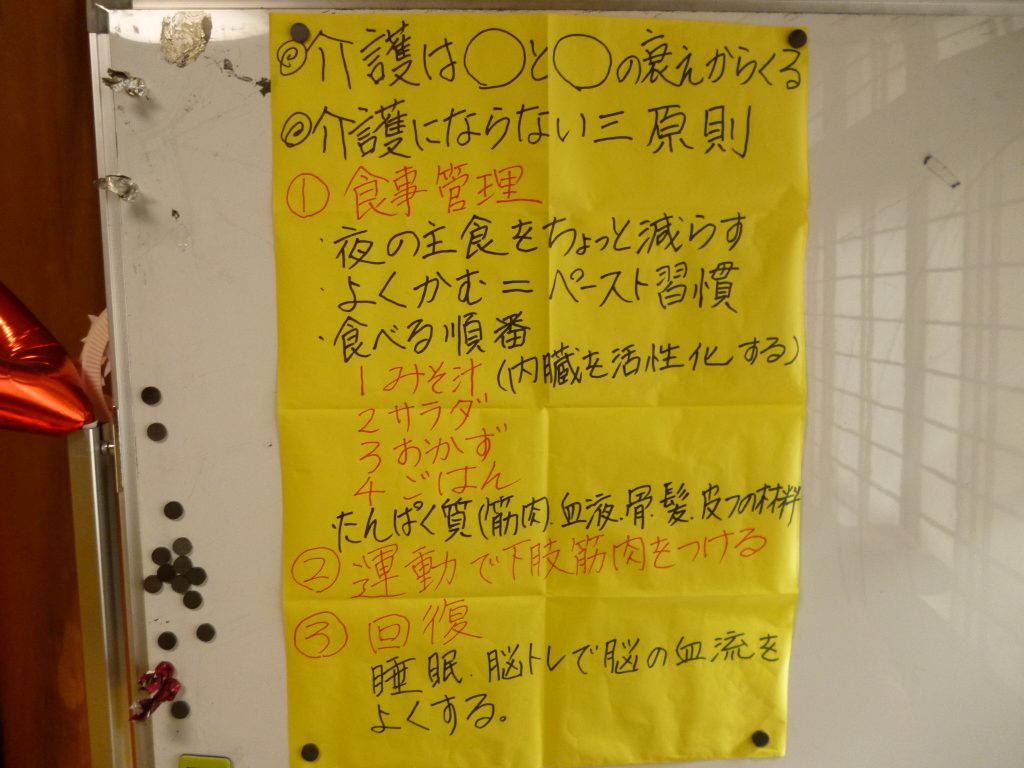 ◎介護は◯と◯の衰えからくる
◎介護にならない三原則
① 食事管理
・夜の主食をちょっと減らす
・よくかむ＝ペースト習慣
・食べる順番
1 みそ汁 (内臓を活性化する)
2 サラダ
3 おかず
4 ごはん
・たんぱく質(筋肉、血液、骨、髪、皮フの材料
② 運動で下肢筋肉をつける
③ 回復
睡眠、脳トレで脳の血流を
よくする。